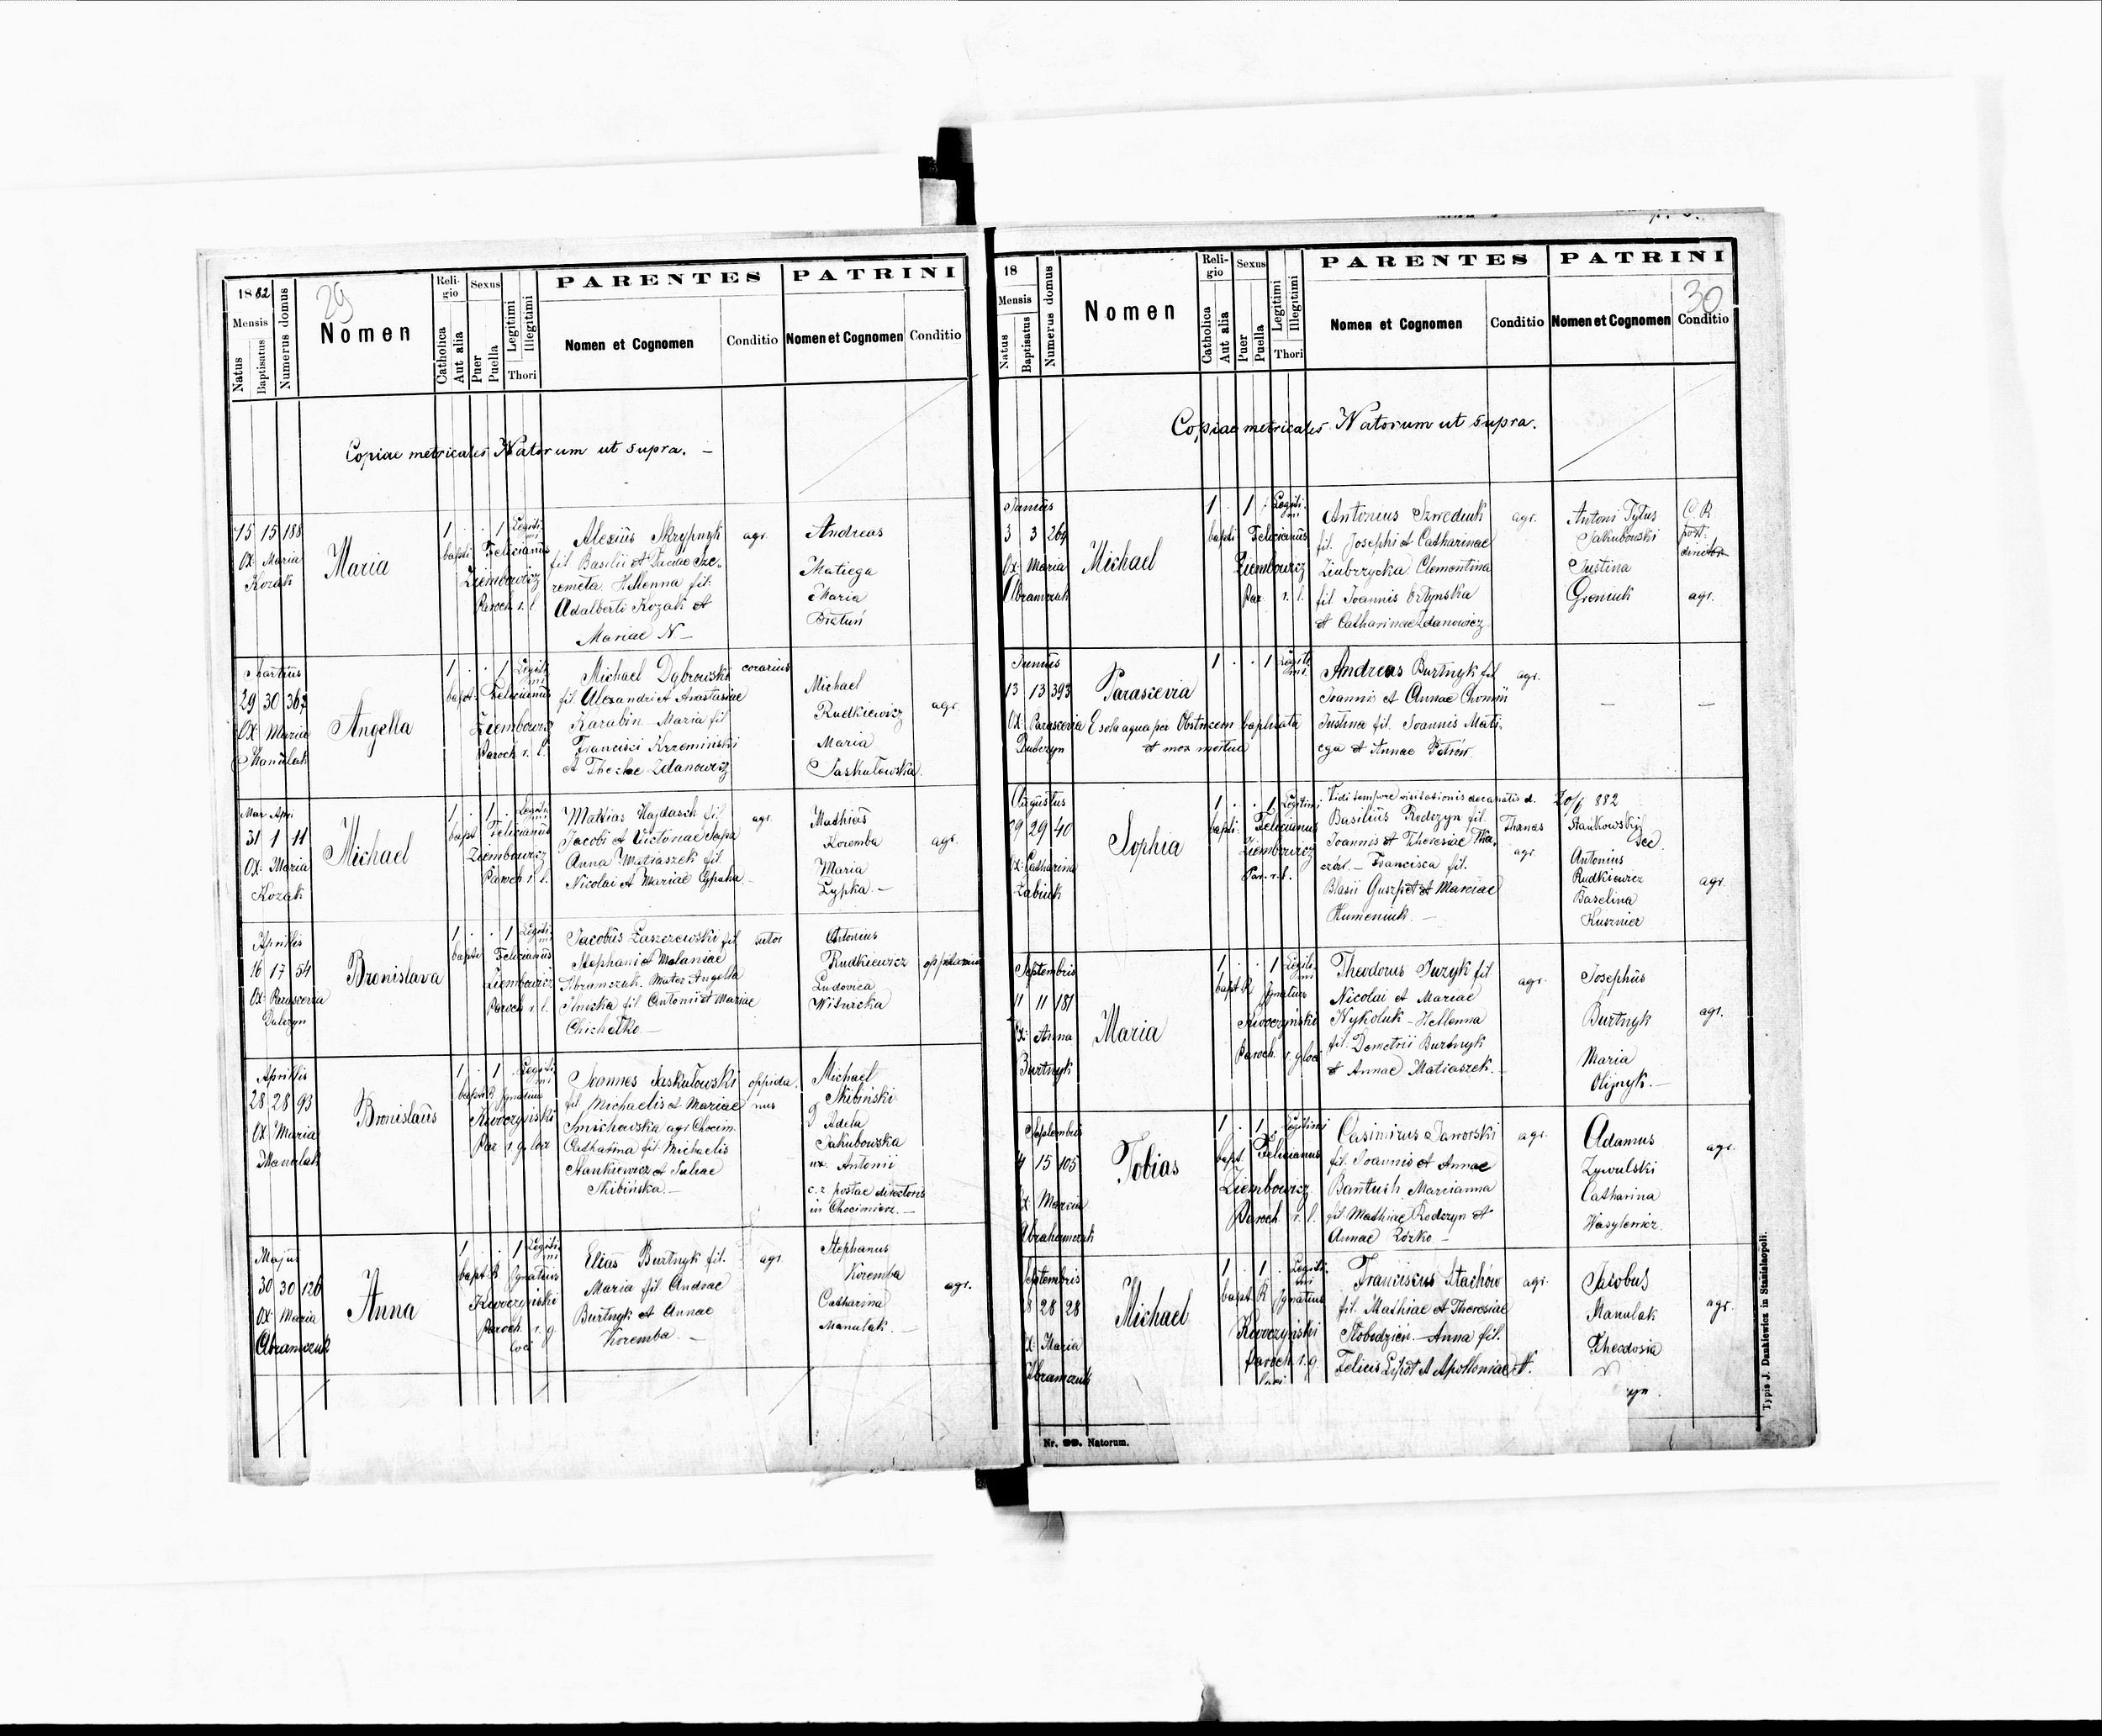 1882
29
Mensis
Natus
Baptisatus
Numerus domus
Nomen
Religio
Catholica
Aut alia
Sexus
Puer
Puella
Legitimi
Illegitimi
Thori
PARENTES
Nomen et Cognomen
Conditio
PATRINI
Nomen et Cognomen
Conditio
Copiae metricales Natorum ut supra. –
15 15 188
Ox: Maria
Kozak
Maria
1 . . 1 Legitimi
bapti Felicianus
Ziembowicz
Paroch r. l.
Alexius Skrypnyk
fil Basilii et
remeta Hellenna fil:
Adalberti Kozak et
Mariae N –
agr.
Andreas
Matiega
Maria
Martius
29 30 367
Ox: Maria
Manulak
Angella
1 . . 1 Legitimi
bapt: Felicianus
Ziembowicz
Paroch r. l.
Michael Dąbrowski
fil Alexandri et Anastasiae
Karabin Maria fil
Francisci Krzemiński
et Theclae Zdanowicz
corarius
Michael
Rudkiewicz
Maria
Jaskułowska
agr.
Mar Apri
31 1 11
Ox: Maria
Kozak
Michael
1 . 1 . Legitimi
bapt Felicianus
Ziembowicz
Paroch r. l.
Mathias Hajdasch fil
Jacobi et Victoriae Sapa
Anna Matiaszek fil
Nicolai et Mariae
agr.
Mathias
Koremba
Maria
Lypka. –
agr.
Aprilis
16 17 54
Ox: Parascevia
Bronislava
1 . . 1 Legitimi
bapti Felicianus
Ziembowicz
Paroch r. l.
Jacobus Łaszczewski fil
Stephani et Melaniae
Abramczuk. Mater Angella
fil Antonii et Mariae
sutor
Antonius
Rudkiewicz
Ludovica
Aprilis
28 28 93
Ox: Maria
Manulak
Bronislaus
1 . 1 . Legitimi
bapt R Ignatius
Par r. g. loci
Joannes Jaskułowski
fil Michaelis et Mariae
Catharina fil: Michaelis
Stankiewicz et Juliae
Skibińska. –
oppidanus
Michael
Skibiński
Adela
Jakubowska
ux. Antonii
c. r. postae directoris
in Chocimierz. –
Majus
30 30 126
Ox: Maria
Abramczuk
Anna
1 . . 1 Legitimi
bapt R. Ignatius
Paroch r. g.
loci
Elias Burtnyk fil.
Maria fil Andreae
Burtnyk et Annae
Koremba. –
agr.
Stephanus
Koremba
Catharina
Manulak. –
agr.
18
30
Mensis
Natus
Baptisatus
Numerus domus
Nomen
Religio
Catholica
Aut alia
Sexus
Puer
Puella
Legitimi
Illegitimi
Thori
PARENTES
Nomen et Cognomen
Conditio
PATRINI
Nomen et Cognomen
Conditio
Copiae metricales Natorum ut supra.
Junius
3 3 264
Ox: Maria
Abramczuk
Michael
1 . 1 . Legitimi
bapti Felicianus
Ziembowicz
Par r. l.
Antonius Szweduk
fil. Josephi et Catharinae
Clementina
fil Joannis
et Catharinae Zdanowicz
agr.
Antoni Tytus
Jakubowski
Justina
C. R.
post.
agr.
Junius
13 13 393
Ox: Parascevia
Parascevia
E sola aqua per Obstricem baptisata
et mox mortua
1 . . 1 Legitimi
Andreas Burtnyk fil
Joannis et Annae
Justina fil. Joannis Matiega
et Annae Petrów
agr.
– –
Augustus
29 29 40
Ox: Catharina
Sophia
1 . . 1 Legitimi
bapti: Felicianus
Ziembowicz
Par. r. l.
Vidi tempore visitationis decanalis d.
20/9 882
Stańkowski
Dec.
Basilius Rodczyn fil.
Joannis et Theresiae
Francisca fil.
Blasii et Mariae
Humeniuk. –
agr.
Antonius
Rudkiewicz
Baselina
Kusznier
agr.
Septembris
11 11 181
Ox: Anna
Burtnyk
Maria
1 . . 1 Legitimi
bapt R Ignatius
Paroch. r. g. loci
Theodorus Juzyk fil
Nicolai et Mariae
Nykoluk – Hellenna
fil: Demetrii Burtnyk
et Annae Matiaszek. –
agr.
Josephus
Burtnyk
Maria
Olijnyk. –
agr.
Septembris
15 105
Tobias
1 . 1 . Legitimi
bapt. Felicianus
Ziembowicz
Paroch r. l.
Casimirus Jaworski
fil. Joannis et Annae
Marcianna
fil Mathiae Rodczyn et
Annae
agr.
Adamus
Zywulski
Catharina
Wasylewicz
agr.
Septembris
28 28
Ox: Maria
Abramczuk
Michael
1 . 1 . Legitimi
bapt R Ignatius
Paroch r. g.
loci
Franciscus Stachów
fil. Mathiae et Theresiae
Słobodzien. – Anna fil.
Felicis et Apolloniae N.
agr.
Jacobus
Manulak
Theodosia
agr.
Nr. 99. Natorum.
Typis J. Dankiewicz in Stanislaopoli.